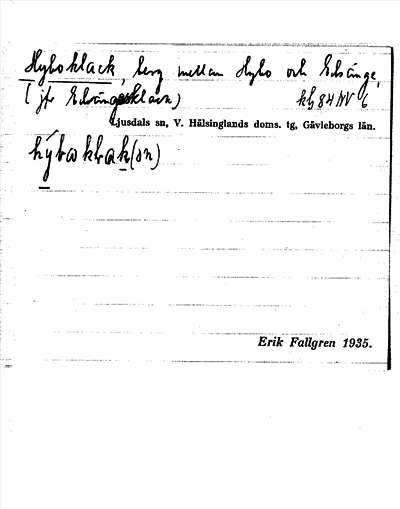 Hyboklack, berg mellan Hybo och Edsänge,
(jfr Edsängesklack) kbl 84 NV 6
Ljusdals sn, V. Hälsinglands doms. tg, Gävleborgs län.
Erik Fallgren 1935.